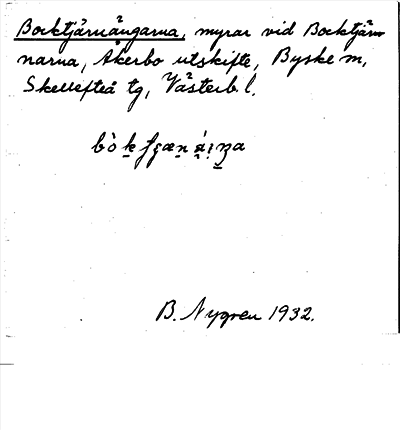 Bocktjärnängarna, myrar vid Bocktjärn
narna, Åkerbo utskifte, Byske sn,
Skellefteå tg, Västerb l.
B. Nygren 1932.